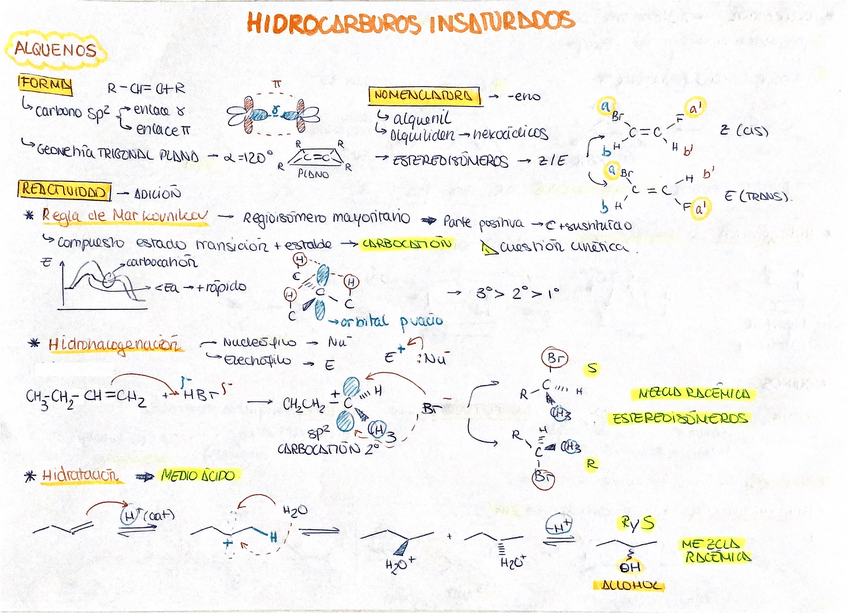 HIDROCARBUROS INSATURADOS
ALQUENOS
FORMA R-CH=CH-R
carbono sp² enlace γ
enlace π
π
γ
GEOMETRÍA TRIGONAL PLANO → α=120°
R R
C=C
R R
PLANO
NOMENCLATURA → -eno
alquenil
alquiliden → hexocíclicos
→ ESTEREOISÓMEROS → Z/E
a Br F a'
C=C
b H H b'
Z (CIS)
a Br H b'
C=C
b H F a'
E (TRANS).
REACTIVIDAD → ADICIÓN
* Regla de Markovnikov → Regioisómero mayoritario ⇒ Parte positiva → C + sustituido
compuesto estado transición + estable → CARBOCATIÓN cuestión cinética.
E carbocatión
<Ea → + rápido
H H C H C C C
orbital p vacío
→ 3° > 2° > 1°
* Hidrohalogenación Nucleófilo → Nu⁻
Electrófilo → E
E⁺ :Nu⁻
CH₃-CH₂-CH=CH₂ + δ⁺ HBr δ⁻ → CH₃CH₂ + C H CH₃ Br⁻
sp²
CARBOCATIÓN 2°
Br S
C H
R CH₃
R H CH₃
C R
Br
MEZCLA RACÉMICA
ESTEREOISÓMEROS
* Hidratación ⇒ MEDIO ÁCIDO
H⁺ (cat) + H H₂O
H₂O⁺ + H₂O⁺
-H⁺
R y S
OH
ALCOHOL
MEZCLA
RACÉMICA